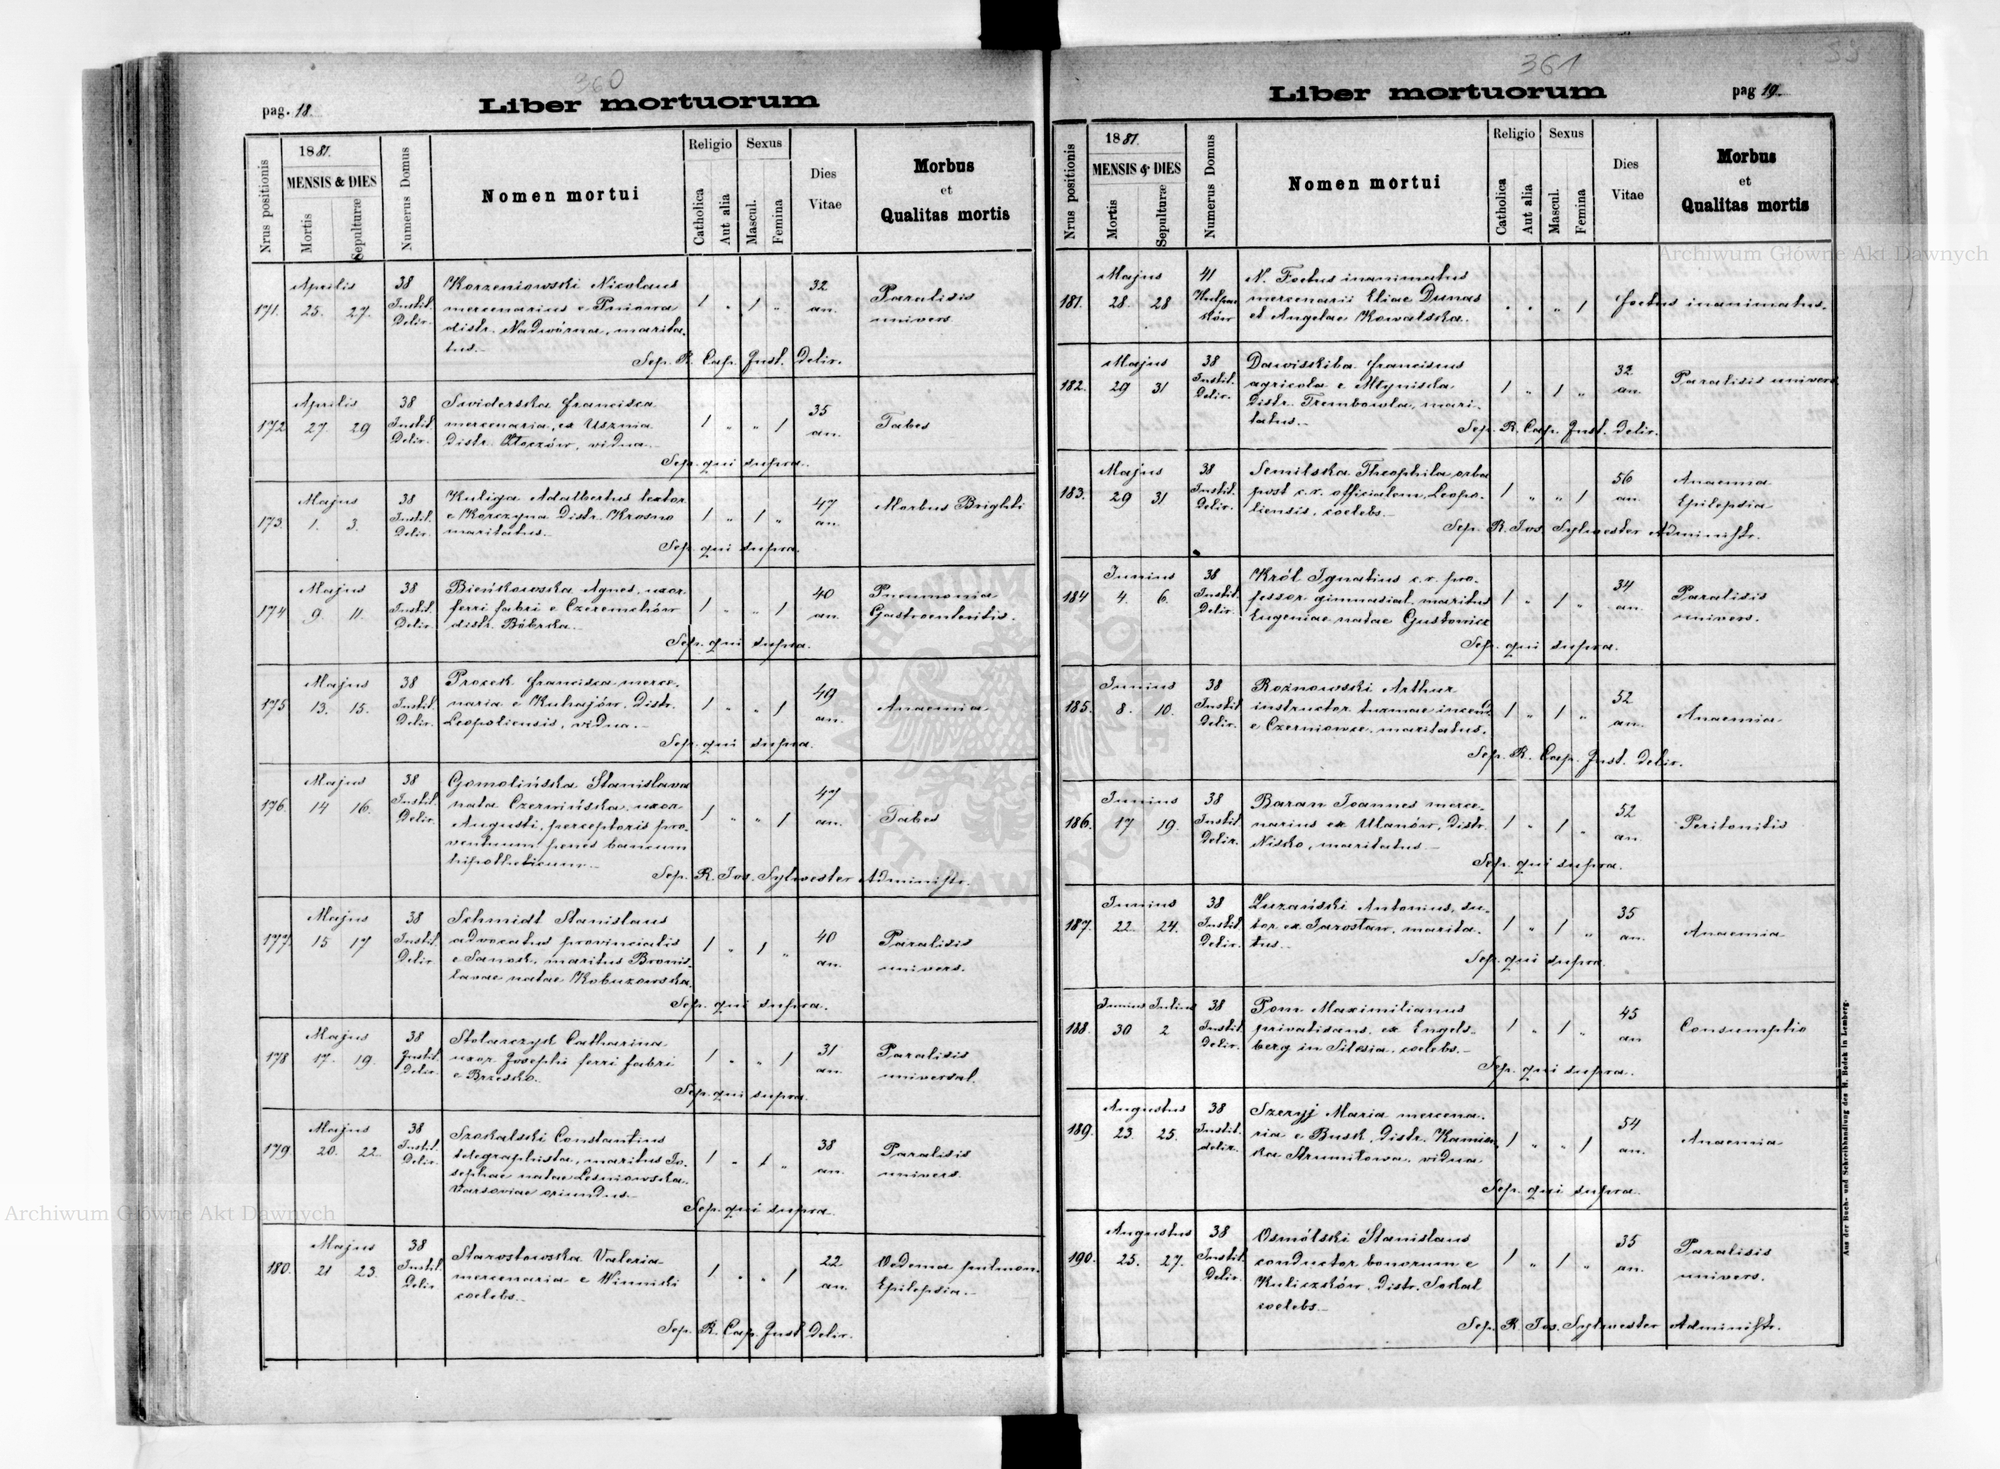 360
pag. 18.
Liber mortuorum
Nrus positionis
1881.
MENSIS & DIES
Mortis
Sepulturæ
Numerus Domus
Nomen mortui
Religio
Catholica
Aut alia
Sexus
Mascul.
Femina
Dies
Vitae
Morbus
et
Qualitas mortis
171. Aprilis 25. 27. 38 Instit. Delir.
Korzeniowski Nicolaus
mercenarius e Pniowa
distr. Nadwórna, marita-
tus.
1 „ 1 „ 32 an.
Paralisis
univers.
Sep. R. Cap. Inst. Delir.
172 Aprilis 27. 29 38 Instit. Delir.
Swiderska Francisca
mercenaria, ex Usznia
Distr. Złoczów, vidua.
1 „ „ 1 35 an.
Tabes
Sep. qui supra.
173. Majus 1. 3. 38 Instit. Delir.
Kuliga Adalbertus textor
e Korczyna Distr. Krosno
maritatus.
1 „ 1 „ 47 an.
Morbus Brighti
Sep. qui supra.
174 Majus 9. 11. 38 Instit. Delir.
Bieńkowska Agnes, uxor
ferri fabri e Czeremchów
distr. Bóbrka.
1 „ „ 1 40 an.
Pneumonia
Gastroenteritis.
Sep. qui supra.
175 Majus 13. 15. 38 Instit. Delir.
Procek Francisca merce-
naria e Kuhajów, Distr.
Leopoliensis, vidua.
1 „ „ 1 49 an.
Anaemia
Sep. qui supra.
176. Majus 14 16. 38 Instit. Delir.
Gomolińska Stanislava
nata Czernińska, uxor
Augusti, perceptoris pro-
ventuum penes bancum
hipotheticum.
1 „ „ 1 47 an.
Tabes
Sep. R. Jos. Sylwester Administr.
177. Majus 15 17 38 Instit. Delir
Schmidt Stanislaus
advocatus provincialis
e Sanok, maritus Bronis-
lavae natae Kobuzowska.
1 „ 1 „ 40 an.
Paralisis
univers.
Sep. qui supra.
178 Majus 17. 19. 38 Instit. Delir.
Stolarczyk Catharina
uxor Josephi ferri fabri
e Brzesko.
1 „ „ 1 31 an.
Paralisis
universal.
Sep. qui supra.
179 Majus 20. 22. 38 Instit. Delir.
Szokalski Constantius
telegraphista, maritus Jo-
sephae natae Lesniowska.
Varsoviae oriundus.
1 „ 1 „ 38 an.
Paralisis
univers.
Sep. qui supra.
180. Majus 21 23. 38 Instit. Delir.
Starostowska Valeria
mercenaria e Winniki
coelebs.
1 „ „ 1 22 an.
Oedema pulmon.
Epilepsia.
Sep. R. Cap. Inst. Delir.
361
Liber mortuorum
pag 19.
Nrus positionis
1881.
MENSIS & DIES
Mortis
Sepulturæ
Numerus Domus
Nomen mortui
Religio
Catholica
Aut alia
Sexus
Mascul.
Femina
Dies
Vitae
Morbus
et
Qualitas mortis
181. Majus 28 28 41
N. Foetus inanimatus
mercenarii Eliae Dunas
et Angelae Kowalska.
„ „ „ 1 foetus inanimatus.
182. Majus 29 31 38 Instit. Delir.
Dawiskiba Franciscus
agricola e Młyniska
Distr. Trembowla, mari-
tatus.
1 „ 1 „ 32 an.
Paralisis univers.
Sep. R. Cap. Inst. Delir.
183. Majus 29 31 38 Instit. Delir.
Semilska Theophila orba
post c. r. officialem, Leopo-
liensis, coelebs.
1 „ „ 1 56 an.
Anaemia
Epilepsia
Sep. R. Jos. Sylwester Administr.
184 Junius 4. 6. 38 Instit. Delir.
Król Ignatius c. r. pro-
fessor gimnasial. maritus
Eugeniae natae Gustowicz
1 „ 1 „ 34 an.
Paralisis
univers.
Sep. qui supra.
185. Junius 8. 10. 38 Instit. Delir.
Rożnowski Arthur
instructor turmae incend.
e Czerniowce, maritatus.
1 „ 1 „ 52 an.
Anaemia
Sep. R. Cap. Inst. Delir.
186. Junius 17 19. 38 Instit. Delir.
Baran Joannes merce-
narius ex Ulanów, Distr.
Nisko, maritatus
1 „ 1 „ 52 an.
Peritonitis
Sep. qui supra.
187. Junius 22. 24. 38 Instit. Delir.
Luzański Antonius, su-
tor ex Jarosław, marita-
tus.
1 „ 1 „ 35 an.
Anaemia
Sep. qui supra.
188. Junius Julius 30 2 38 Instit. Delir.
Pom Maximilianus
privatisans, ex Engels-
berg in Silesia, coelebs.
1 „ 1 „ 45 an
Consumptio
Sep. qui supra.
189. Augustus 23. 25. 38 Instit. delir.
Szeryj Maria mercena-
ria e Busk, Distr. Kamion-
ka Strumiłowa, vidua
1 „ „ 1 54 an.
Anaemia
Sep. qui supra.
190. Augustus 25. 27. 38 Instit. Delir.
Osmólski Stanislaus
conductor bonorum e
Kuliczków, Distr. Sokal
coelebs.
1 „ 1 „ 35 an.
Paralisis
univers.
Sep. R. Jos. Sylwester Administr.
Aus der Buch- und Schreibhandlung des H. Bodek in Lemberg.
Archiwum Główne Akt Dawnych
Archiwum Główne Akt Dawnych